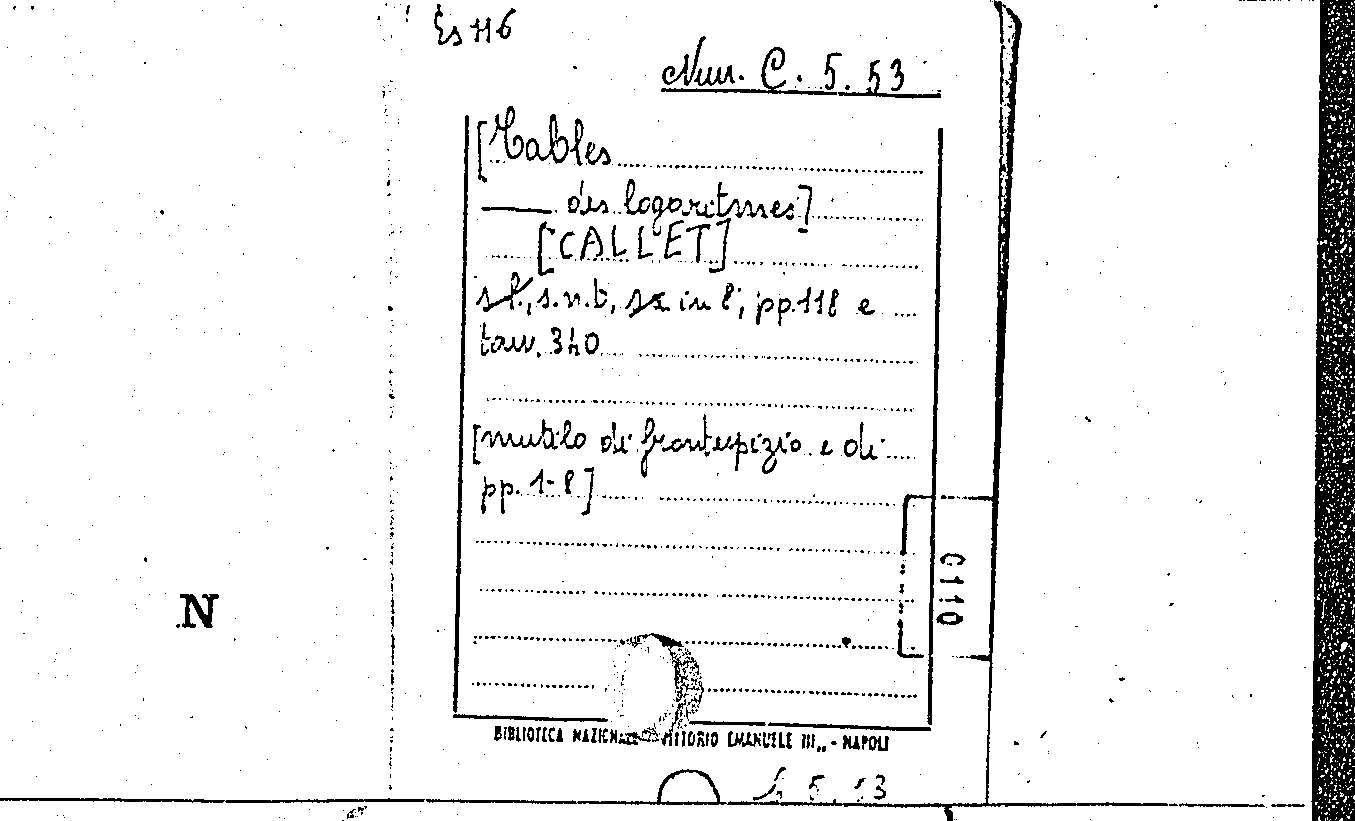 Es 116
Nun. C. 5. 53
[Tables
des logaritmes]
[CALLET]
s.l., s.n.t, sx. in 8°, pp. 118 e
tav. 340
[mutilo di frontespizio e di
pp. 1-8]
0110
N
BIBLIOTECA NAZIONALE VITTORIO EMANUELE III„ - NAPOLI
5. 53